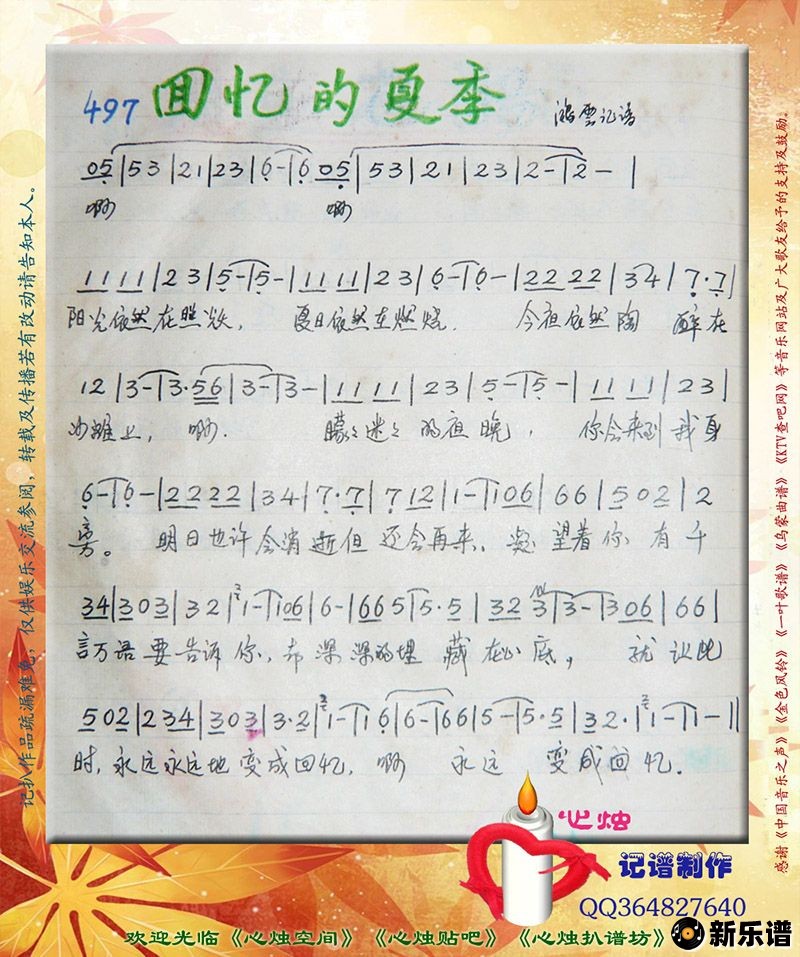 497 回忆的夏季 鸿云记谱
05|53|21|23|6-|6 05|53|21|23|2-|2-|
啊 啊
1111|23|5-|5-|1111|23|6-|6-|2222|34|7·7|
阳光依然在照耀， 夏日依然在燃烧． 今夜依然陶 醉在
12|3-|3·56|3-|3-|1111|23|5-|5-|1111|23|
沙滩上， 啊． 朦々迷々的夜晚， 你会来到我身
6-|6-|2222|34|7·7|712|1-|106|66|502|2
旁。 明日也许会消逝但还会再来、凝望着你有千
34|303|32|1-|106|6-|665|5·5|323|3-|306|66|
言万语要告诉你，却深深的埋藏在心底， 就让此
502|234|303|3·2|1-|16|6-|66|5-|5·5|32·|1-|1-||
时，永远永远地变成回忆，啊 永远 变成回忆．
记扒作品疏漏难免，仅供娱乐交流参阅，转载及传播若有改动请告知本人。
感谢《中国音乐之声》《金色风铃》《一叶歌谱》《乌蒙曲谱》《KTV查吧网》等音乐网站及广大歌友给予的支持及鼓励。
心烛
记谱制作
QQ364827640
欢迎光临《心烛空间》《心烛贴吧》《心烛扒谱坊》
新乐谱